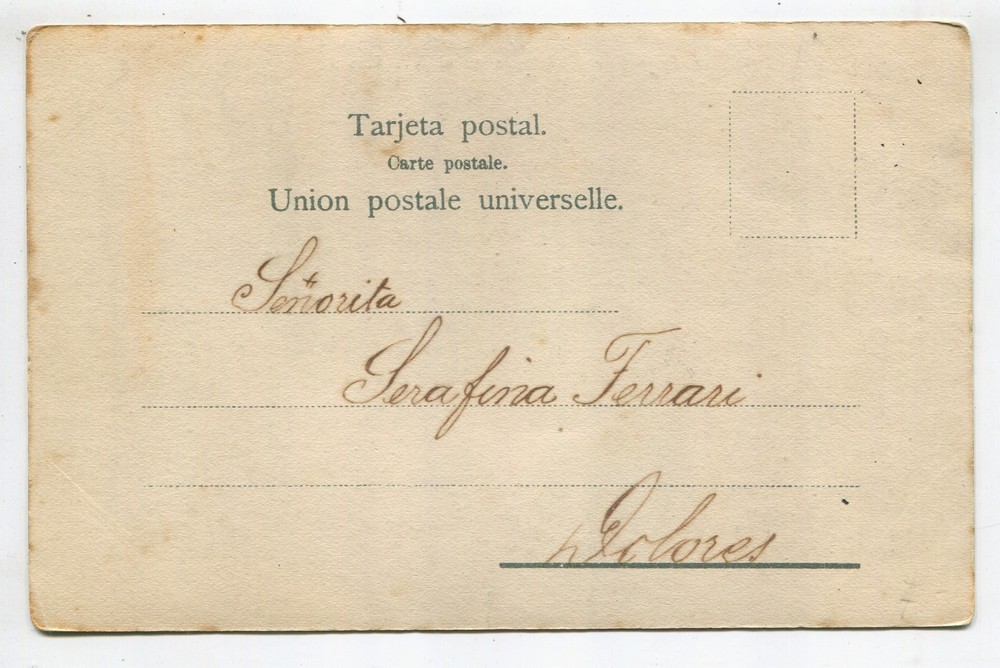 Tarjeta postal.
Carte postale.
Union postale universelle.
Señorita
Serafina Ferrari
Dolores